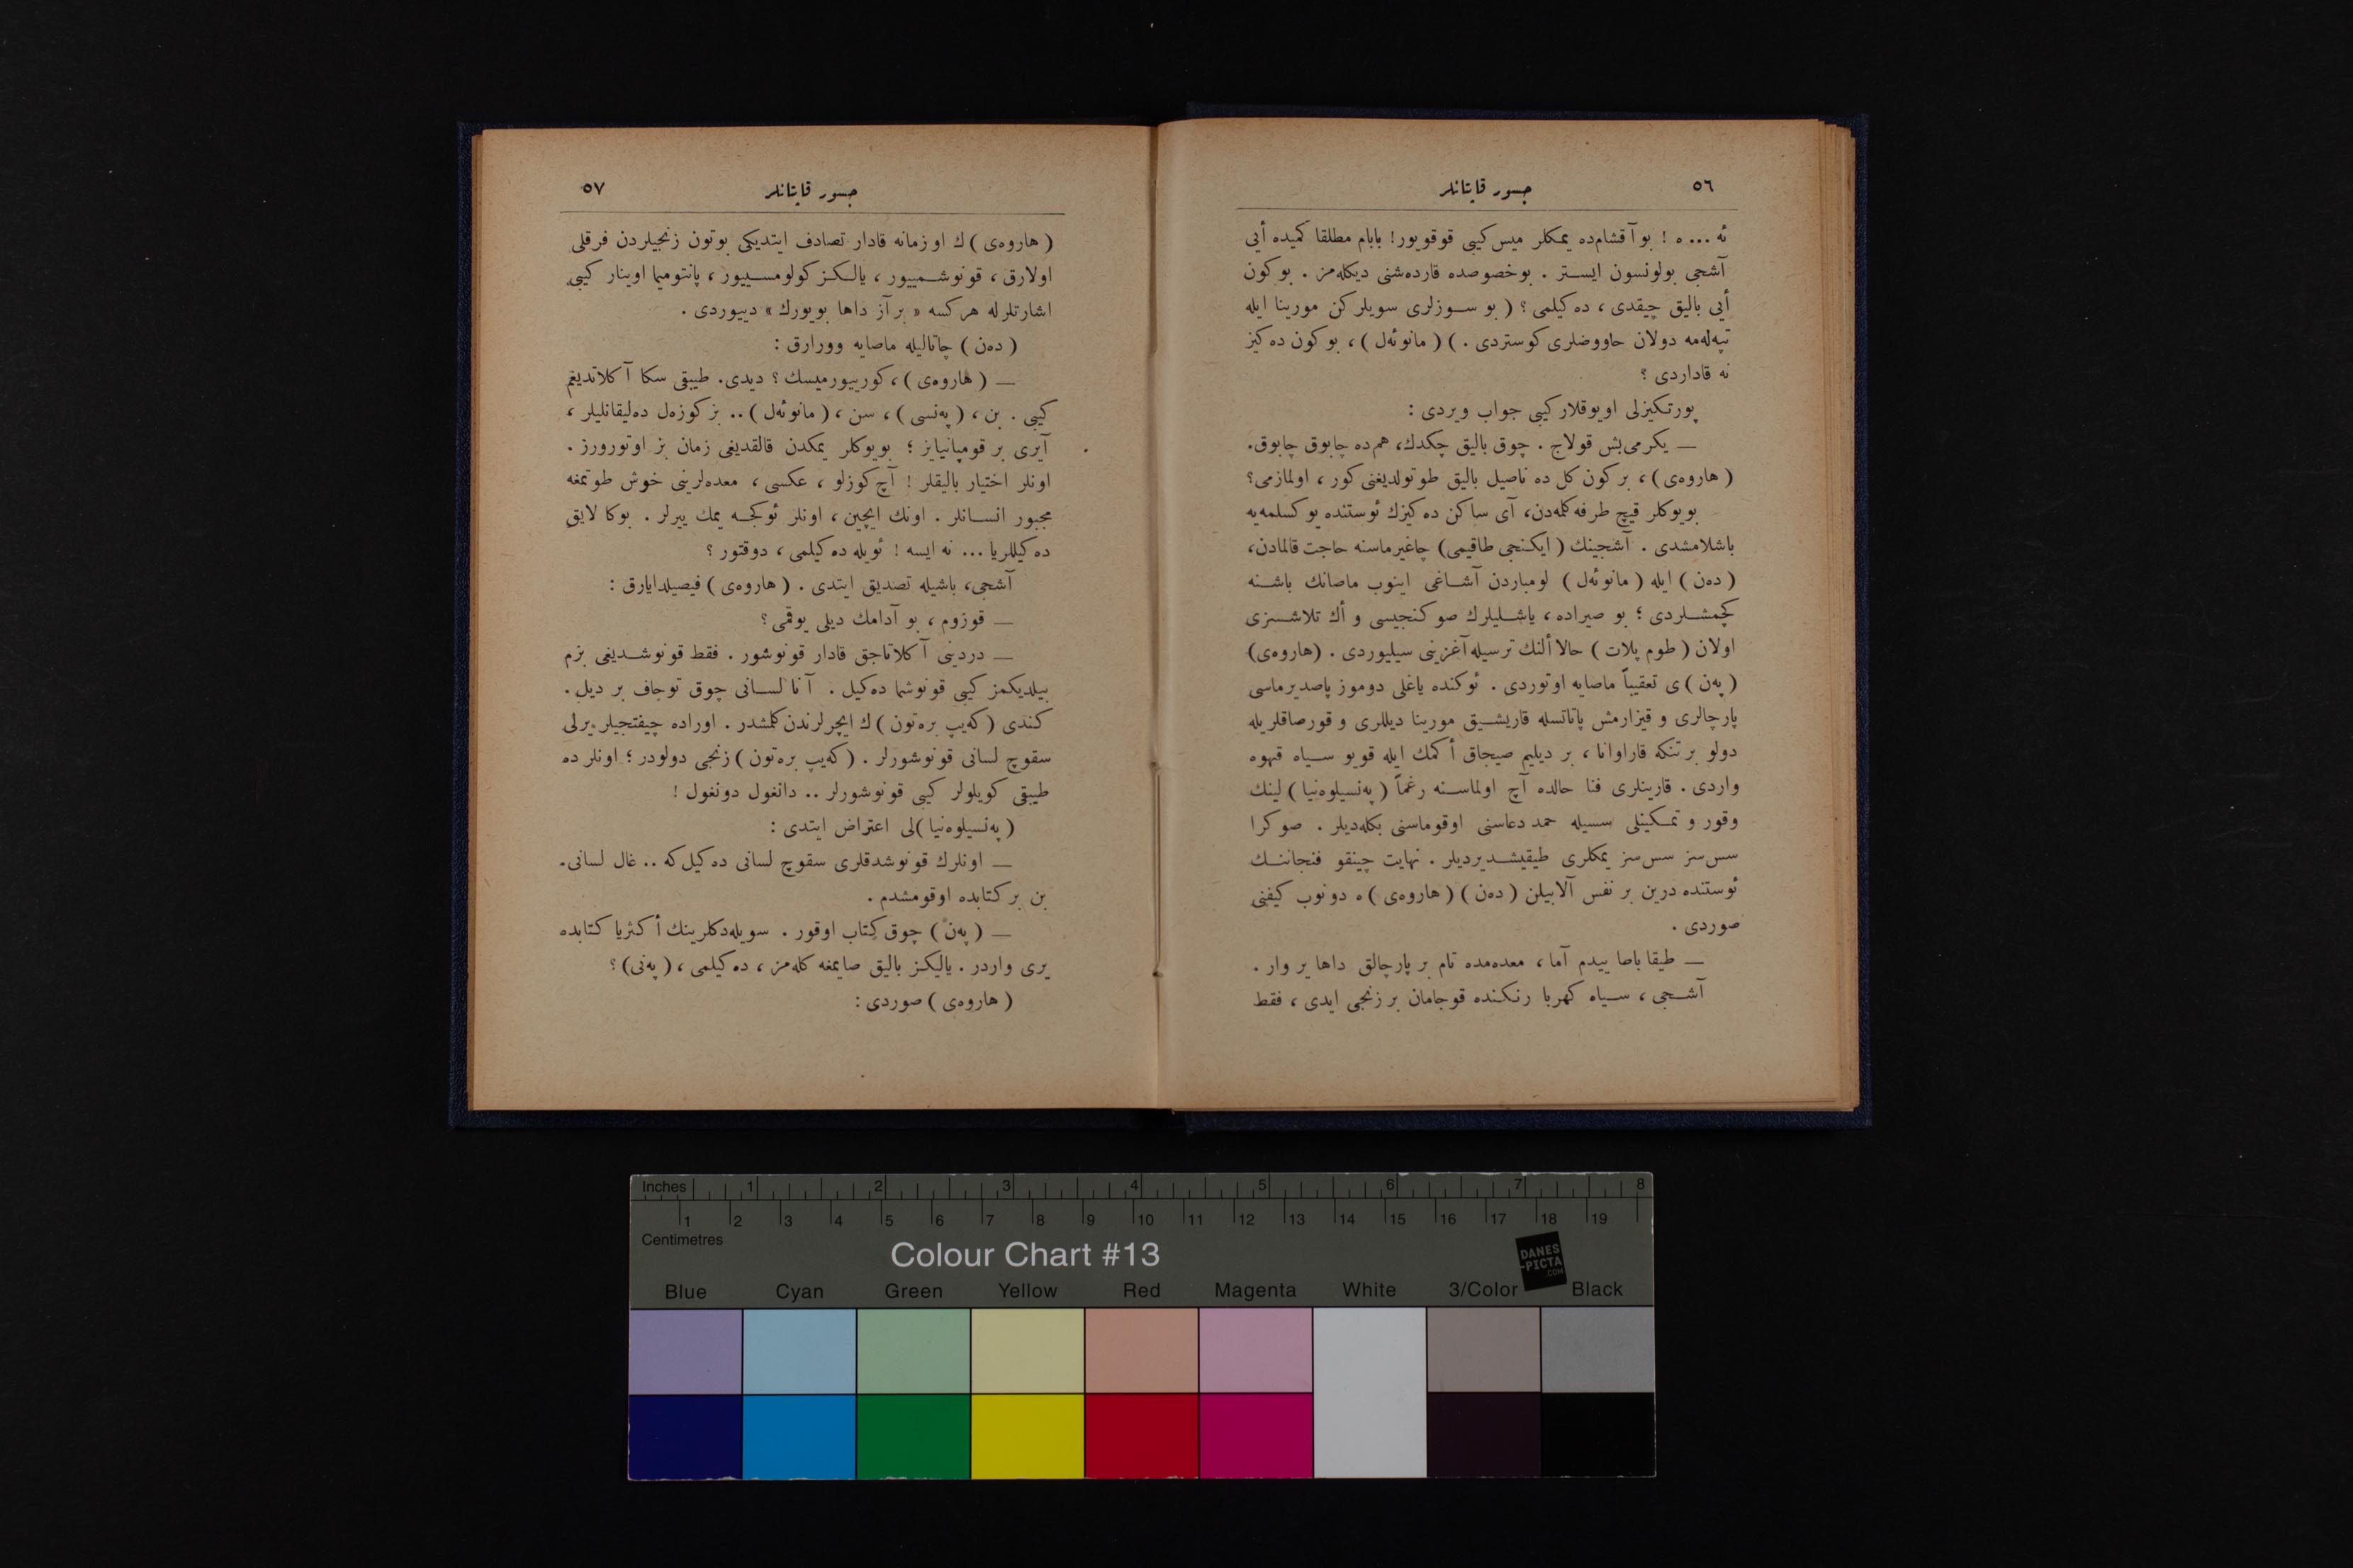 ٥٦
جسور قاپتانلر
ئه ... ه ! بو آقشام‌ده یمكلر میس كیبی قوقویور! بابام مطلقا كمیده أیی
آشجی بولونسون ایستر . بوخصوصده قارده‌شنی دیكله‌مز . بوكون
أیی بالیق چیقدی ، ده‌كیلمی ؟ ( بو سوزلری سویلركن مورینا ایله
تپه‌له‌مه دولان حاووضلری كوستردی . ) ( مانوئه‌ل ) ، بوكون ده‌كیز
نه قاداردی ؟
پورتكیزلی اویوقلار كیبی جواب ویردی :
— یكرمی‌بش قولاج . چوق بالیق چكدك، هم‌ده چابوق چابوق.
( هاروه‌ی ) ، بركون كل ده ناصیل بالیق طوتولدیغنی كور ، اولمازمی؟
بویوكلر قیچ طرفه كلمه‌دن، آی ساكن ده‌كیزك ئوستنده یوكسلمه‌یه
باشلامشدی . آشجینك ( ایكنجی طاقیمی) چاغیرماسنه حاجت قالمادن،
( ده‌ن ) ایله ( مانوئه‌ل ) لومباردن آشاغی اینوب ماصانك باشنه
كچمشلردی ؛ بو صیراده ، یاشلیلرك صوكنجیسی و أك تلاشسزی
اولان ( طوم پلات ) حالا ألنك ترسیله آغزینی سیلیوردی . (هاروه‌ی)
( په‌ن ) ی تعقیباً ماصایه اوتوردی . ئوكنده یاغلی دوموز پاصدیرماسی
پارچالری و قیزارمش پاتاتسله قاریشیق مورینا دیللری و قورصاقلریله
دولو بر تنكه قاراوانا ، بر دیلیم صیجاق أكمك ایله قویو سیاه قهوه
واردی . قارینلری فنا حالده آچ اولماسنه رغماً ( په‌نسیلوه‌نیا ) لینك
وقور و تمكینلی سسیله حمد دعاسنی اوقوماسنی بكله‌دیلر . صوكرا
سس‌سز سس‌سز یمكلری طیقیشدیردیلر . نهایت چینقو فنجاننك
ئوستنده درین بر نفس آلابیلن ( ده‌ن ) ( هاروه‌ی ) ه دونوب كیفنی
صوردی .
— طیقا باصا ییدم آما ، معده‌مده تام بر پارچالق داها یر وار .
آشجی ، سیاه كهربا رنكنده قوجامان بر زنجی ایدی ، فقط
جسور قاپتانلر
٥٧
( هاروه‌ی ) ك او زمانه قادار تصادف ایتدیكی بوتون زنجیلردن فرقلی
اولارق ، قونوشمییور ، یالكز كولومسییور ، پانتومیما اوینار كیبی
اشارتلرله هركسه « بر آز داها بویورك » دییوردی .
( ده‌ن ) چاتالیله ماصایه وورارق :
— ( هاروه‌ی ) ، كورییورمیسك ؟ دیدی. طیبقی سكا آكلاتدیغم
كیبی . بن ، ( په‌نسی ) ، سن ، ( مانوئه‌ل ) .. بز كوزه‌ل ده‌لیقانلیلر ،
آیری بر قومپانیایز ؛ بویوكلر یمكدن قالقدیغی زمان بز اوتورورز .
اونلر اختیار بالیقلر ! آچ كوزلو ، عكسی ، معده‌لرینی خوش طوتمغه
مجبور انسانلر . اونك ایچین ، اونلر ئوكجه یمك ییرلر . بوكا لایق
ده‌كیللریا ... نه ایسه ! ئویله ده‌كیلمی ، دوقتور ؟
آشجی، باشیله تصدیق ایتدی . ( هاروه‌ی ) فیصیلدایارق :
— قوزوم ، بو آدامك دیلی یوقمی ؟
— دردینی آكلاتاجق قادار قونوشور . فقط قونوشدیغی بزم
بیلدیكمز كیبی قونوشما ده‌كیل . آنا لسانی چوق توحاف بر دیل.
كندی ( كه‌یپ بره‌تون ) ك ایچرلرندن كلمشدر . اوراده چیفتجیلر یرلی
سقوچ لسانی قونوشورلر . ( كه‌یپ بره‌تون ) زنجی دولودر ؛ اونلر ده
طیبقی كویلولر كیبی قونوشورلر .. دانغول دونغول !
( په‌نسیلوه‌نیا )لی اعتراض ایتدی :
— اونلرك قونوشدقلری سقوچ لسانی ده‌كیل كه .. غال لسانی.
بن بر كتابده اوقومشدم .
— ( په‌ن ) چوق كتاب اوقور . سویله‌دكلرینك أكثریا كتابده
یری واردر . یالیكز بالیق صایمغه كله‌مز ، ده‌كیلمی ، ( په‌نی) ؟
( هاروه‌ی ) صوردی :
Inches 1 2 3 4 5 6 7 8
1 2 3 4 5 6 7 8 9 10 11 12 13 14 15 16 17 18 19
Centimetres
Colour Chart #13
DANES
-PICTA
.COM
Blue Cyan Green Yellow Red Magenta White 3/Color Black